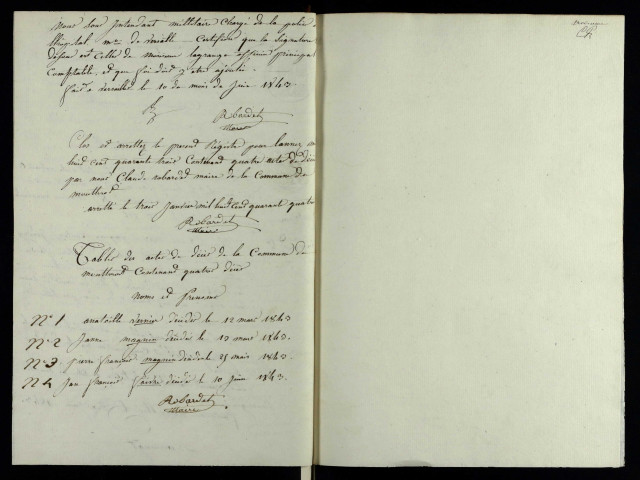 Nous Sous Intendant militaire Chargé de la police
hopital
certifions que la Signature
est Celle de Monsieur lagrange officier principal
Comptable, et que foi doit y etre ajoutée.
fait a le 10 de mois de Juin 1843.
Robardet
Maire
Clos et arrettez le present Registre pour lannez mil
huid cent quarante trois Contenand quatre actes de déces
par nous Claude robardet maire de la Commune de
arretté le trois Janvier mil huid cend quarant quatre
Robardet
Maire
Tables des actes de décès de la Commune de
Contenand quatre décès
noms et Prenoms
N° 1 anatoille décédez le 12 mars 1843
N° 2 Janne magnin décédé le 19 mars 1843.
N° 3 pierre françois magnin décédé le 25 mars 1843.
N° 4 Jan françois décédé le 10 Juin 1843.
Robardet
Maire